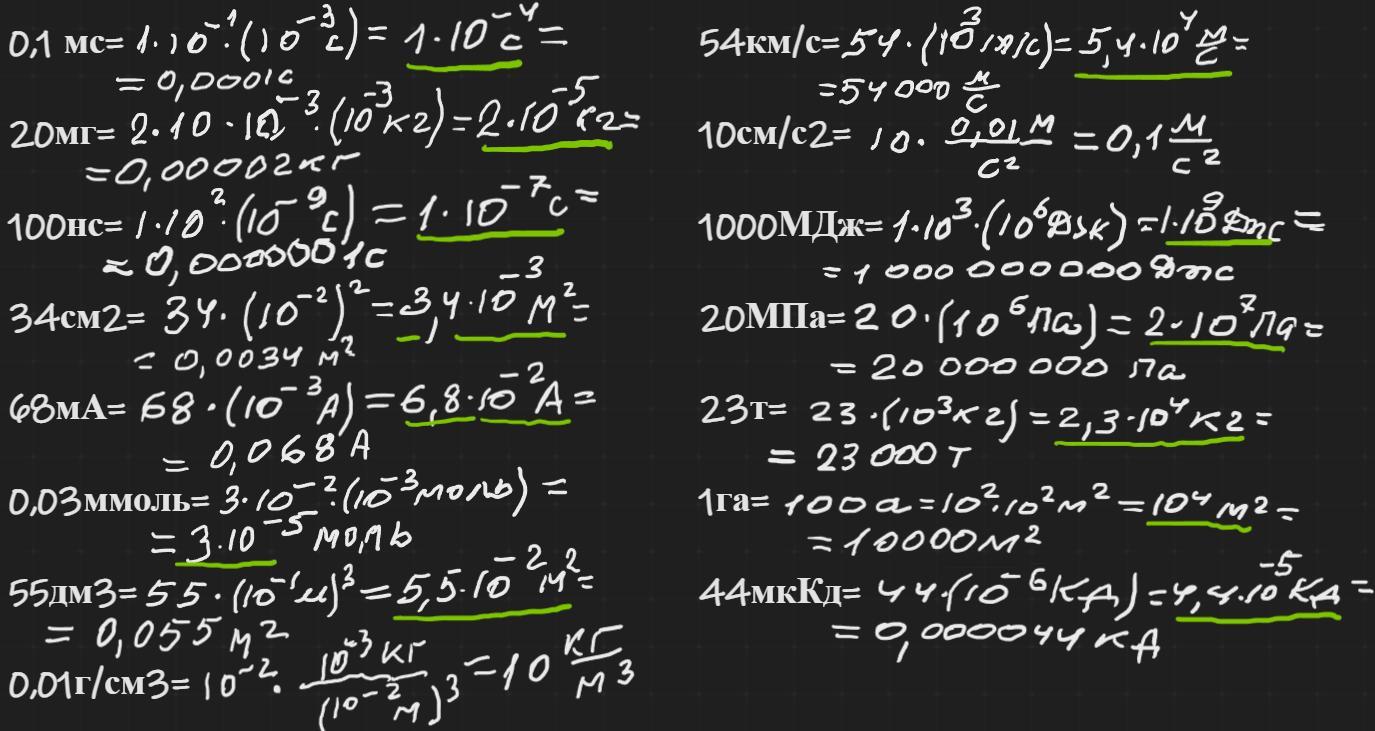 0,1 мс= 1·10⁻¹·(10⁻³с) = 1·10⁻⁴с =
= 0,0001с
20мг= 2·10·10⁻³·(10⁻³кг)=2·10⁻⁵кг=
=0,00002кг
100нс= 1·10²·(10⁻⁹с) = 1·10⁻⁷с =
= 0,0000001с
34см2= 34·(10⁻²)²=3,4·10⁻³м²=
= 0,0034 м²
68мА= 68·(10⁻³А)=6,8·10⁻²А=
= 0,068А
0,03ммоль= 3·10⁻²·(10⁻³моль) =
= 3·10⁻⁵моль
55дм3= 55·(10⁻¹м)³=5,5·10⁻²м²=
= 0,055м²
0,01г/см3= 10⁻²· 10⁻³кг/(10⁻²м)³ = 10 кг/м³
54км/с= 54·(10³м/с)=5,4·10⁴ м/с =
=54000 м/с
10см/с2= 10· 0,01м/с² = 0,1 м/с²
1000МДж= 1·10³·(10⁶Дж) =1·10⁹Дж =
= 1 000 000 000 Дж
20МПа= 20·(10⁶Па)= 2·10⁷Па=
= 20 000 000 Па
23т= 23·(10³кг)=2,3·10⁴кг=
= 23 000 т
1га= 100а=10²·10²м²=10⁴м²=
=10000м²
44мкКд= 44·(10⁻⁶КД)=4,4·10⁻⁵КД=
= 0,000044КД